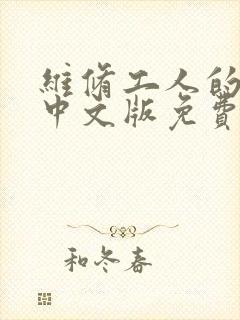 維脩工人的
中文版免費
和冬春